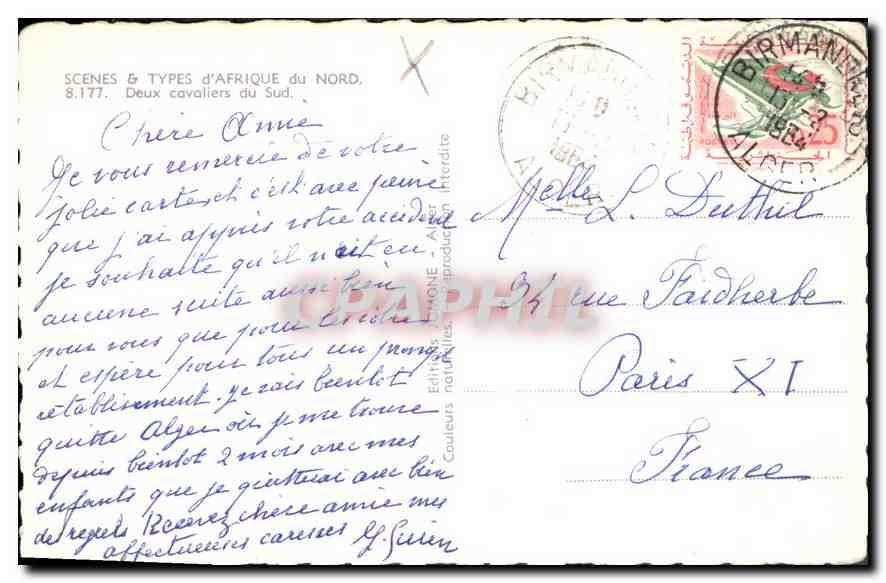 SCENES & TYPES d'AFRIQUE du NORD.
8.177. Deux cavaliers du Sud.
Chère Amie
Je vous remercie de votre
jolie carte, et c'est avec peine
que j'ai appris votre accident
je souhaite qu'il n'ait eu
aucune suite aussi bien
pour vous que pour les votre
et espère pour tous un prompt
rétablissement. Je vais bientot
quitte Alger où je me trouve
depuis bientot 2 mois avec mes
enfants que je quitterai avec bien
de regrets Recevez chère amie mes
affectueuses caresses
Editions JOMONE - Alger Interdite
Couleurs naturelles. Reproduction
BIRMAN
1964
ALGER
25
BIRMAN
1964
Melle L. Duthil
34 rue Faidherbe
Paris XI
France
CPAPHIL